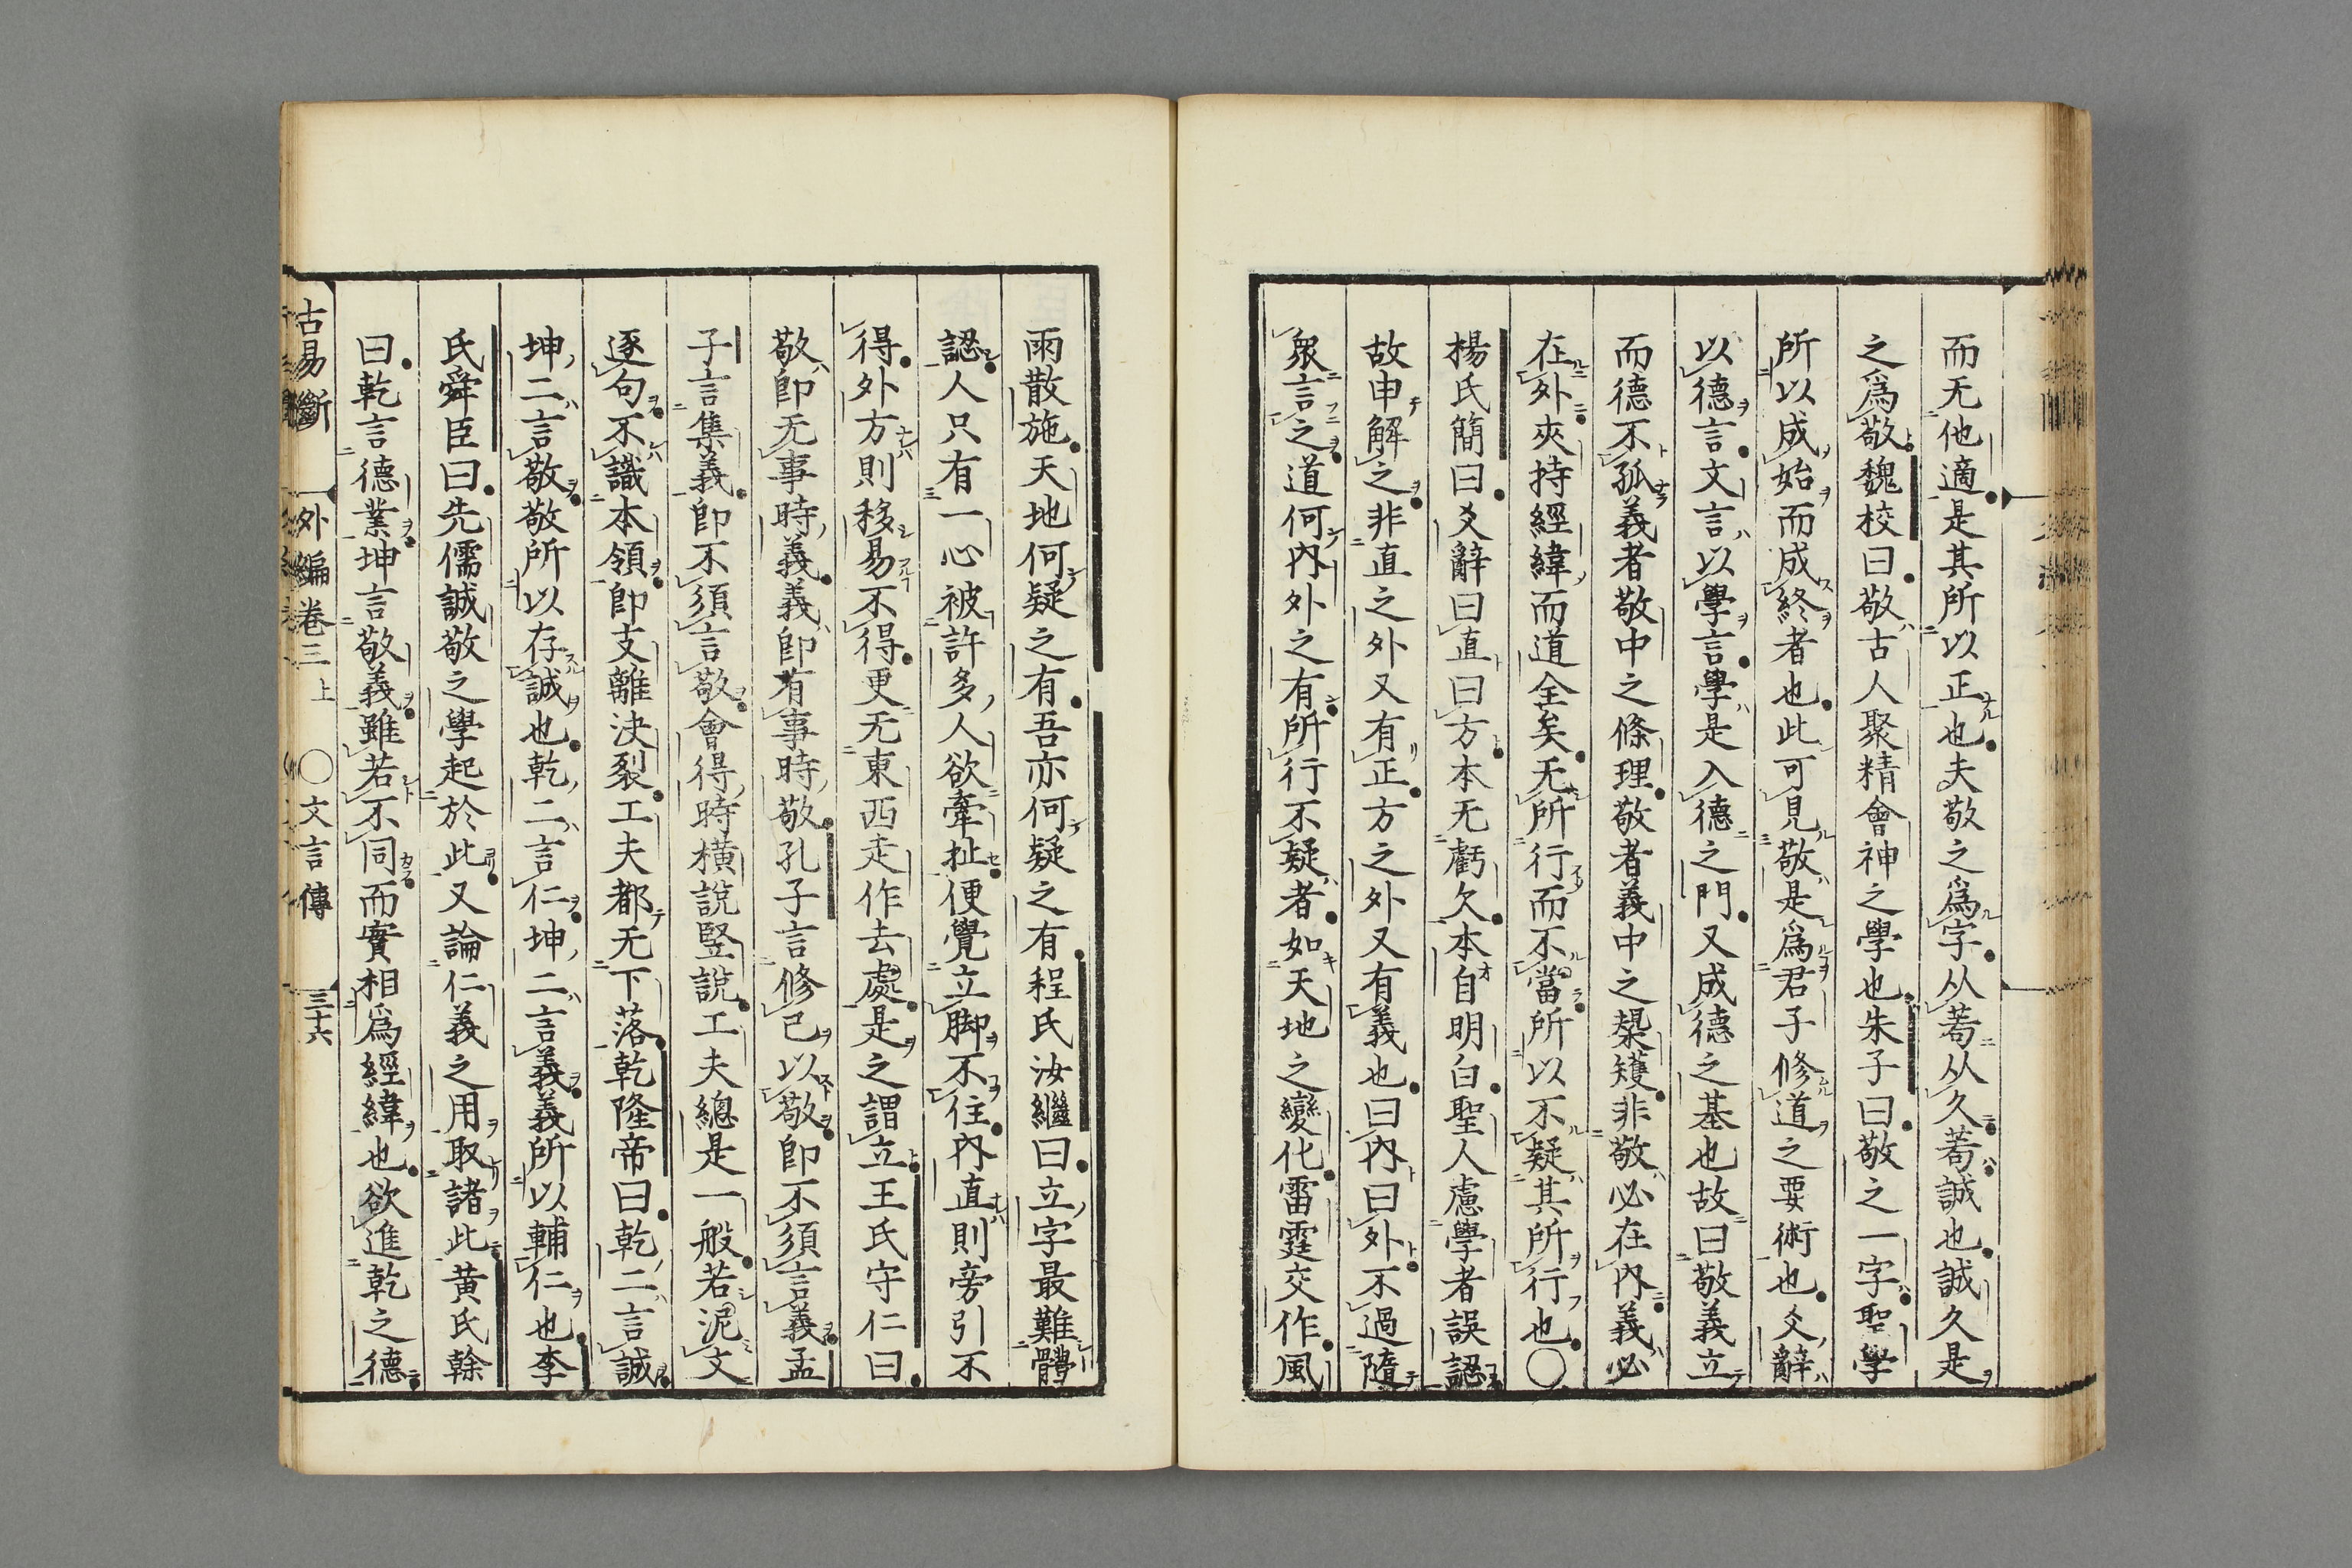 而无他適是其所以正也夫敬之爲字从茍从久茍誠也誠久是
之爲敬魏校曰敬古人聚精會神之學也朱子曰敬之一字聖學
所以成始而成終者也此可見敬是爲君子修道之要術也爻辭
以德言文言以學言學是入德之門又成德之基也故曰敬義立
而德不孤義者敬中之條理敬者義中之榘矱非敬必在內義必
在外夾持經緯而道全矣无所行而不當所以不疑其所行也〇
楊氏簡曰爻辭曰直曰方本无虧欠本自明白聖人慮學者誤認
故申解之非直之外又有正方之外又有義也曰內曰外不過隨
衆言之道何內外之有所行不疑者如天地之變化雷霆交作風
雨散施天地何疑之有吾亦何疑之有程氏汝繼曰立字最難體
認人只有一心被許多人欲牽扯便覺立脚不住內直則旁引不
得外方則移易不得更无東西走作去處是之謂立王氏守仁曰
敬卽无事時義義卽有事時敬孔子言修己以敬卽不須言義孟
子言集義卽不須言敬會得時橫說竪說工夫總是一般若泥文
逐句不識本領卽支離決裂工夫都无下落乾隆帝曰乾二言誠
坤二言敬敬所以存誠也乾二言仁坤二言義義所以輔仁也李
氏舜臣曰先儒誠敬之學起於此又論仁義之用取諸此黃氏榦
曰乾言德業坤言敬義雖若不同而實相爲經緯也欲進乾之德
古易斷 外編卷三上 〇文言傳 三十六